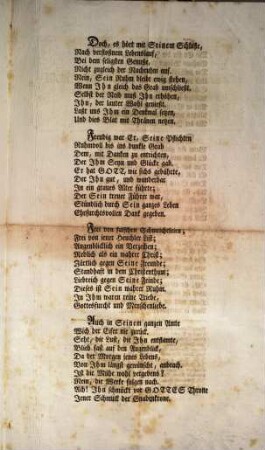 Doch, es hört mit Seinem Schlusse,
Nach verflossnem Lebenslauf,
Bei dem seligsten Genusse,
Nicht zugleich der Nachruhm auf.
Nein, Sein Ruhm bleibt ewig stehen,
Wenn Ihn gleich das Grab umschließt.
Selbst der Neid muß Ihn erhöhen,
Ihn, der lauter Wohl genießt.
Laßt uns Ihm ein Denkmal setzen,
Und dies Blat mit Thränen netzen.
Freudig war Er, Seine Pflichten
Ruhmvoll bis ins dunkle Grab
Dem, mit Danken zu entrichten,
Der Ihm Seyn und Glücke gab.
Er hat GOTT, wie sichs gebührte,
Der Ihn gut, und wunderbar
In ein graues Alter führte;
Der Sein treuer Führer war,
Stündlich durch Sein ganzes Leben
Ehrfurchtsvollen Dank gegeben.
Frei von falschen Schmeicheleien;
Frei von jener Heuchler List;
Augenblicklich im Verzeihen;
Redlich als ein wahrer Christ;
Zärtlich gegen Seine Freunde;
Standhaft in dem Christenthum;
Liebreich gegen Seine Feinde;
Dieses ist Sein wahrer Ruhm.
In Ihm waren reine Triebe,
Gottesfurcht und Menschenliebe.
Auch in Seinem ganzen Amte
Wich der Eifer nie zurück.
Seht, die Lust, die Ihn entflamte,
Blieb fast auf den Augenblick,
Da der Morgen jenes Lebens,
Von Ihm längst gewünscht, anbrach.
Ist die Mühe wohl vergebens?
Nein, die Werke folgen nach.
Ach! Ihn schmückt vor GOTTES Throne
Jener Schmuck der Gnadenkrone.